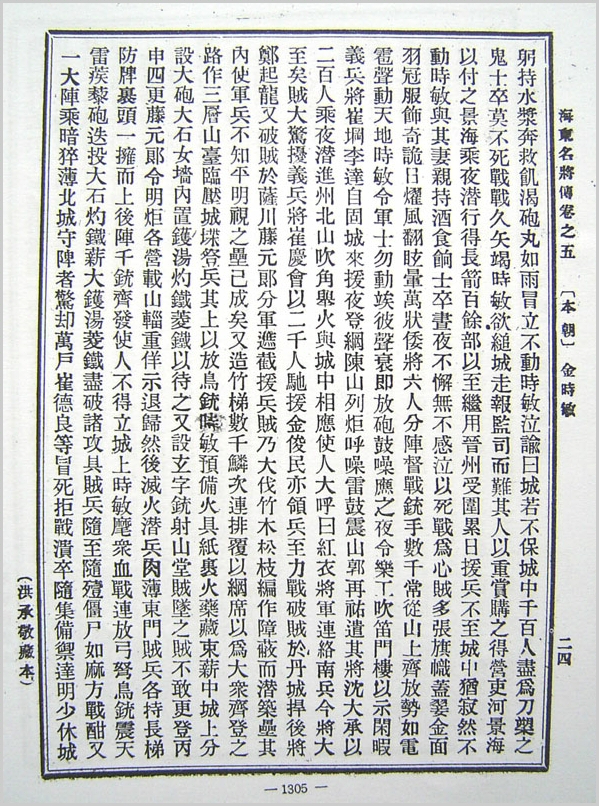 海東名將傳卷之五 〔本朝〕 金時敏 二四
躬持水漿奔救飢渴砲丸如雨冒立不動時敏泣諭曰城若不保城中千百人盡爲刀槊之
鬼士卒莫不死戰戰久矢竭時敏欲縋城走報監司而難其人以重賞購之得營吏河景海
以付之景海乘夜潛行得長箭百餘部以至繼用晉州受圍累日援兵不至城中猶寂然不
動時敏與其妻親持酒食餉士卒晝夜不懈無不感泣以死戰爲心賊多張旗幟蓋翣金面
羽冠服飾奇詭日燿風翻眩暈萬狀倭將六人分陣督戰銃手數千常從山上齊放勢如電
雹聲動天地時敏令軍士勿動竢彼聲衰卽放砲鼓噪應之夜令樂工吹笛門樓以示閑暇
義兵將崔堈李達自固城來援夜登網陳山列炬呼噪雷鼓震山郭再祐遣其將沈大承以
二百人乘夜潛進州北山吹角擧火與城中相應使人大呼曰紅衣將軍連絡南兵今將大
至矣賊大驚擾義兵將崔慶會以二千人馳援金俊民亦領兵至力戰破賊於丹城捍後將
鄭起龍又破賊於薩川藤元郞分軍遮截援兵賊乃大伐竹木松枝編作障蔽而潛築壘其
內使軍兵不知平明視之壘已成矣又造竹梯數千鱗次連排覆以網席以爲大衆齊登之
路作三層山臺臨壓城堞登兵其上以放鳥銃時敏預備火具紙裹火藥藏束薪中城上分
設大砲大石女墻內置鑊湯灼鐵菱鐵以待之又設玄字銃射山堂賊墜之賊不敢更登丙
申四更藤元郞令明炬各營載山輜重佯示退歸然後滅火潛兵肉薄東門賊兵各持長梯
防牌裹頭一擁而上後陣千銃齊發使人不得立城上時敏麾衆血戰連放弓弩鳥銃震天
雷蒺藜砲迭投大石灼鐵薪大鑊湯菱鐵盡破諸攻具賊兵隨至隨殪僵尸如麻方戰酣又
一大陣乘暗猝薄北城守陴者驚却萬戶崔德良等冒死拒戰潰卒隨集備禦達明少休城
(洪承敬藏本)
— 1305 —